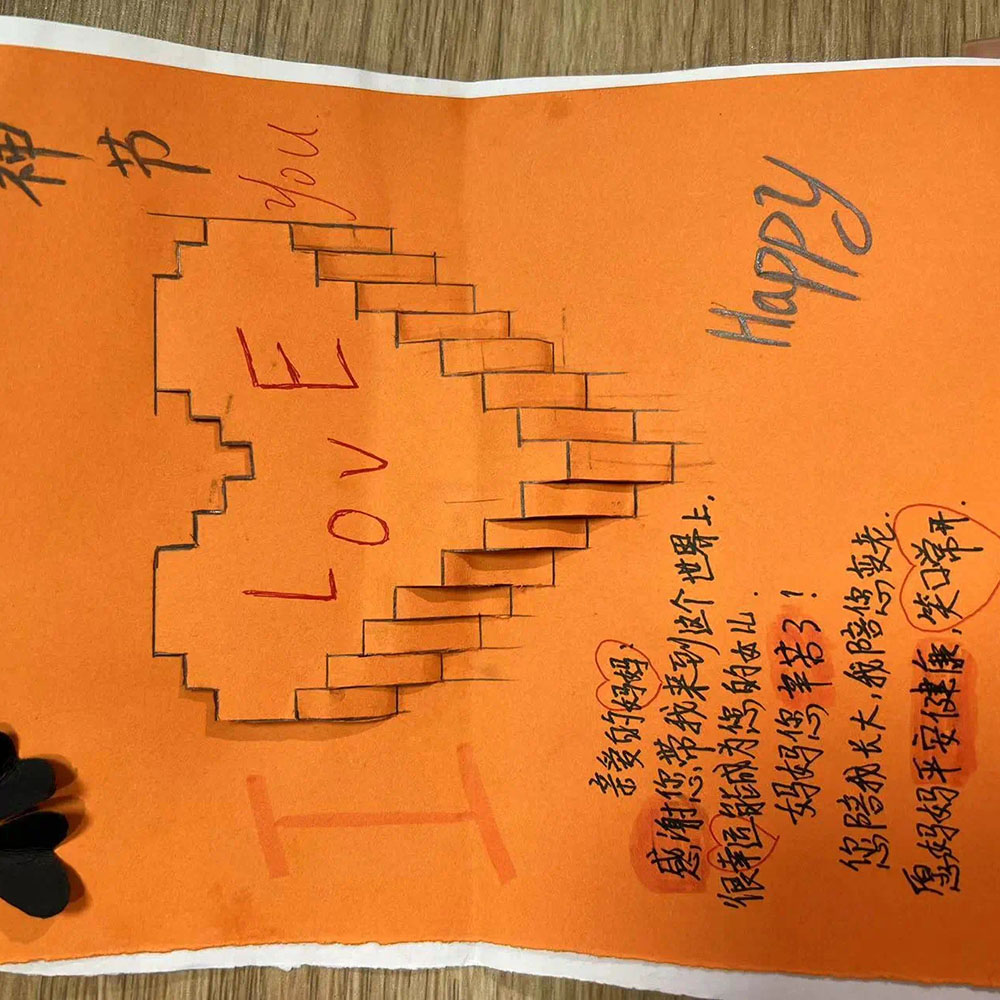 神节
I LOVE You.
Happy
亲爱的妈妈：
感谢您带我来到这个世界上，
很幸运能成为您的女儿．
妈妈您辛苦了！
您陪我长大，我陪您变老．
愿妈妈平安健康，笑口常开．